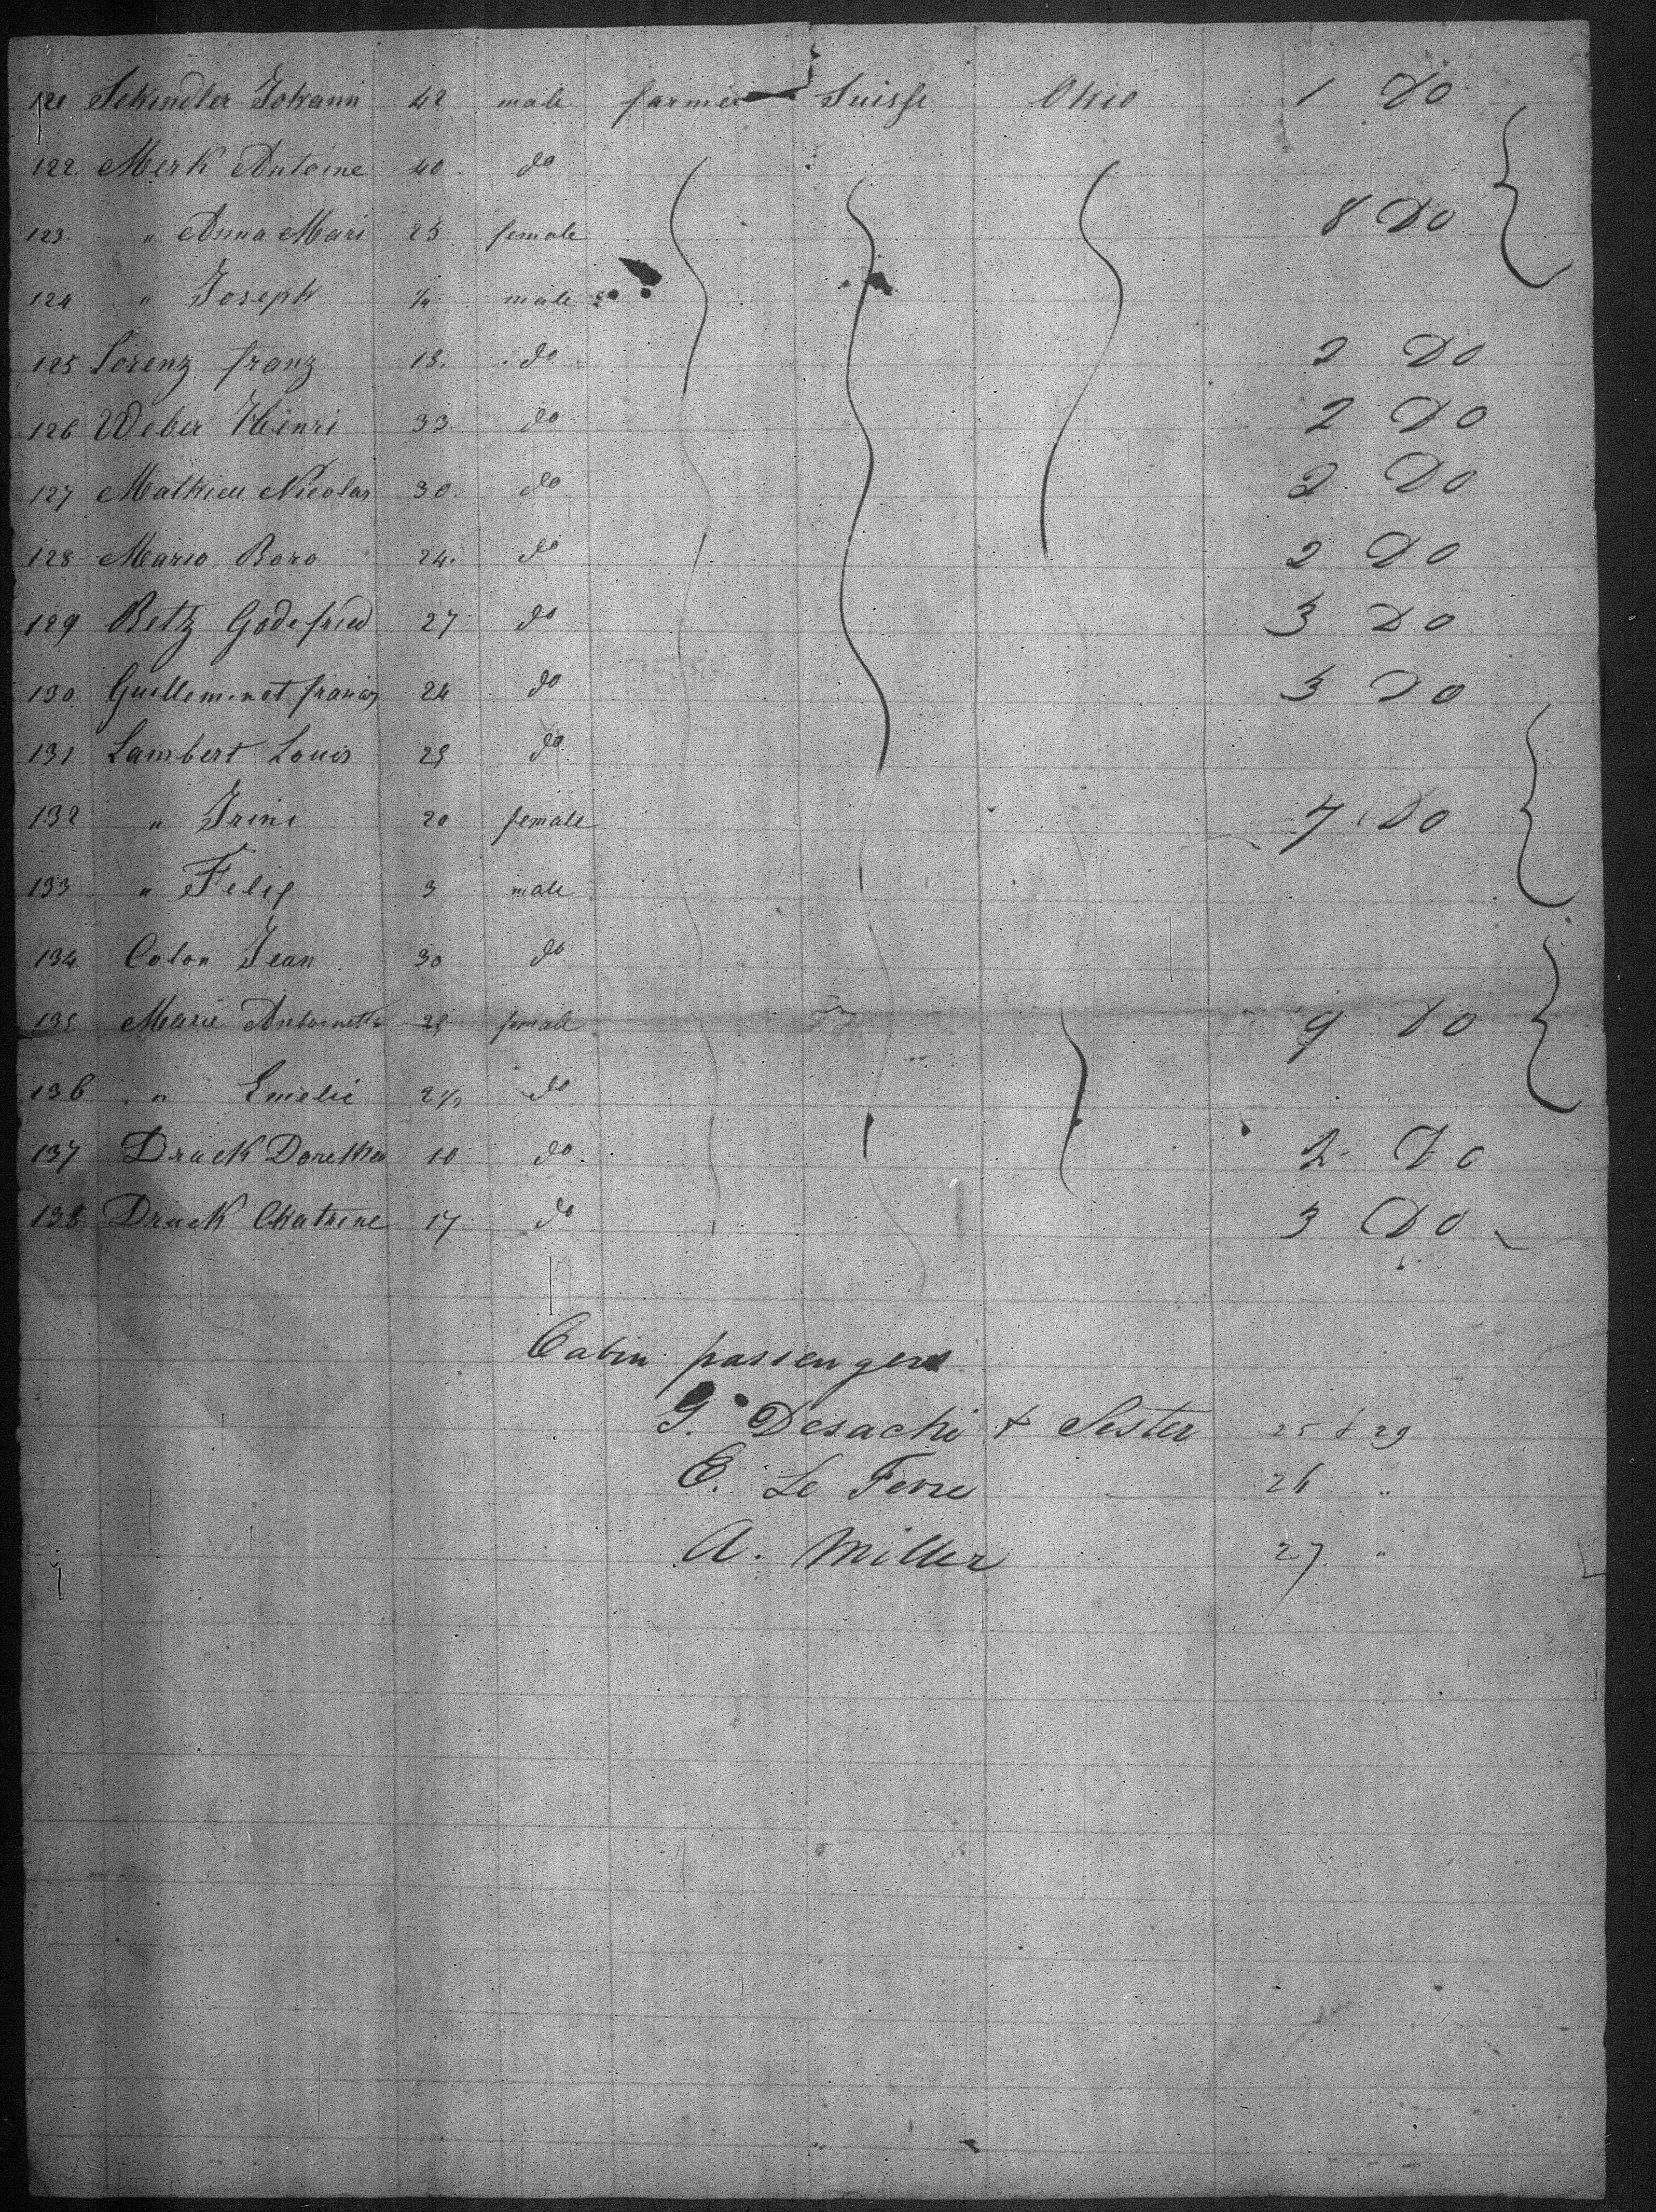 121 Schindler Johann 42 male farmer Suisse Ohio 1 Do
122 Merk Antoine 40 do
123 " Anna Mari 25 female 8 Do
124 " Joseph male
125 Lorenz franz 18. do 2 Do
126 Weber Heinri 33 do 2 Do
127 Mathieu Nicolas 30. do 2 Do
128 Mario Boro 24. do 2 Do
129 Betz Godefried 27 do 3 Do
130 Guilleminot 24 do 3 Do
131 Lambert Louis do
132 " Irini 20 female 7 Do
133 " Felix 3 male
134 Colon Jean 30 do
135 Marie Antoinette female 9 Do
136 " Emelie do
137 Druck Dorethea 10 do 2 Do
138 Druck Chatrine 17 do 3 Do
Cabin passengers
G. Desachi & Sister 25 & 29
E. Le Fevre 26 "
A. Miller 27 "